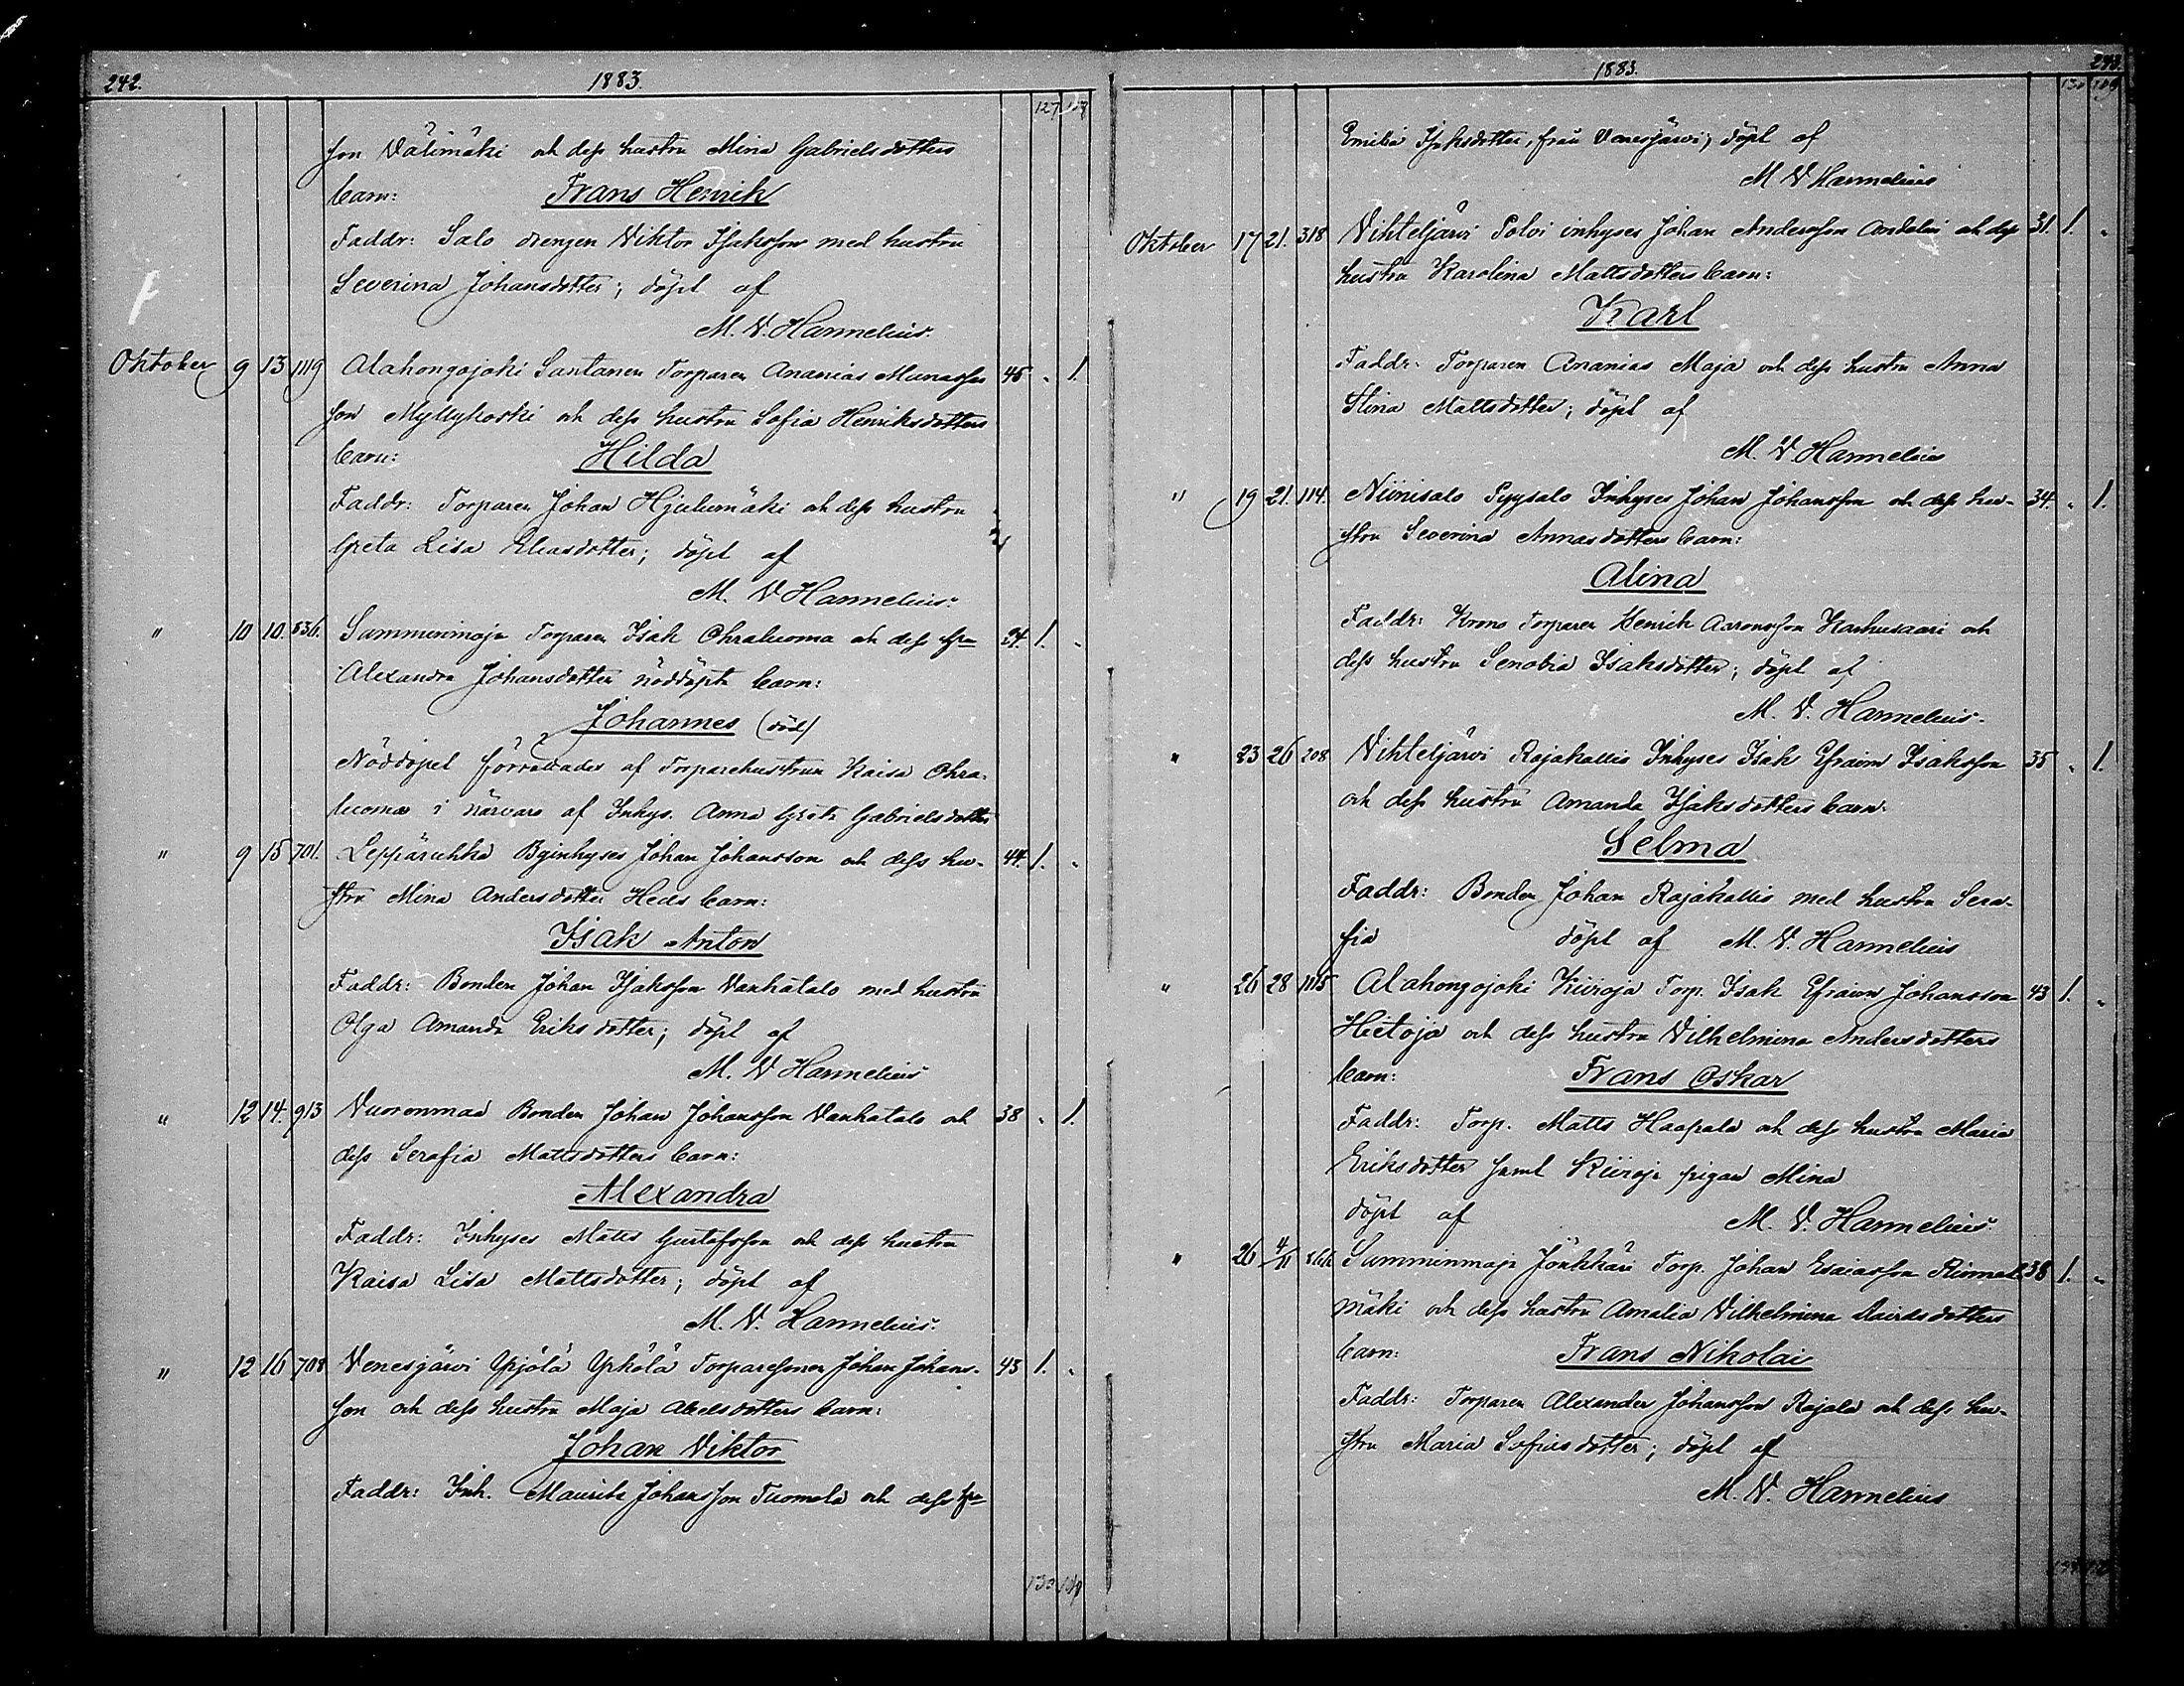 242. 1883.
127 107
son Välimäki och dess hustru Mina Gabrielsdotters
barn: Frans Henrik
Faddr: Salo drengen Viktor Isaksson med hustru
Severina Johansdotter; döpt af
M. V. Hannelius.
Oktober 9 13 1119 Alahongojoki Santanen Torparen Ananias Manasse 45 " 1.
son Myllykoski och dess hustru Sofia Henriksdotters
barn: Hilda
Faddr: Torparen Johan Hjulumäki och dess hustru
Greta Lisa Eliasdotter; döpt af
M. V Hannelius.
" 10 10 836. Summinmaja Torparen Isak Ohraluoma och dess hu 24. 1. "
Alexandra Johansdotter nöddöpta barn:
Johannes (död)
Nöddopet förrättades af Torparehustrun Kaisa Ohra-
luoma i närvaro af Inhys. Anna Greta Gabrielsdotter
" 9 15 701. Leppäruhka Bginhyses Johan Johansson och dess hu- 44. 1. "
stru Mina Andersdotter Heds barn:
Isak Anton
Faddr: Bonden Johan Isaksson Vanhatalo med hustru
Olga Amanda Eriksdotter; döpt af
M. V Hannelius
" 12 14. 913 Vuorenmaa Bonden Johan Johansson Vanhatalo och 38 " 1.
dess Serafia Mattsdotters barn:
Alexandra
Faddr: Inhyses Matts Gustafsson och dess hustru
Kaisa Lisa Mattsdotter; döpt af
M. V. Hannelius.
" 12 16 708 Venesjärvi Ypjölä Ypkölä Torparesonen Johan Johans- 43 1. "
son och dess hustru Maja Abelsdotters barn:
Johan Viktor
Faddr: Inh. Maurits Johansson Tuomola och dess hu
130 109
1883. 243.
130 109
Emilia Isaksdotter, från Venesjärvi; döpt af
M V Hannelius
Oktober 17 21. 318 Vihteljärvi Poloi inhyses Johan Andersson Andelin och dess 31. 1. "
hustru Karolina Mattsdotters barn:
Karl
Faddr: Torparen Ananias Maja och dess hustru Anna
Stina Mattsdotter; döpt af
M. V. Hannelius
" 19 21. 114. Niinisalo Pyysalo Inhyses Johan Johansson och dess hu- 34. " 1.
stru Severina Annasdotters barn:
Alina
Faddr: Krono Torparen Henrik Aaronsson Karhusaari och
dess hustru Senobia Isaksdotter; döpt af
M. V. Hannelius.
" 23 26 208 Vihteljärvi Rajakallio Inhyses Isak Efraim Isaksson 35 " 1.
och dess hustru Amanda Isaksdotters barn.
Selma
Faddr: Bonden Johan Rajakallio med hustru Sera-
fia döpt af M. V. Hannelius
" 26 28 1115 Alahongojoki Kiiroja Torp. Isak Efraim Johansson 43 1. "
Hietoja och dess hustru Vilhelmina Andersdotters
barn: Frans Oskar
Faddr: Torp. Matts Haapala och dess hustru Maria
Eriksdotter samt Kiiroja pigan Mina
döpt af M. V. Hannelius.
" 26 4/11 Summinmaja Jönkkäri Torp. Johan Esaiasson 38 1. "
mäki och dess hustru Amalia Vilhelmina Davidsdotters
barn: Frans Nikolai
Faddr: Torparen Alexander Johansson Rajala och dess hu-
stru Maria Sofiasdotter; döpt af
M. V. Hannelius